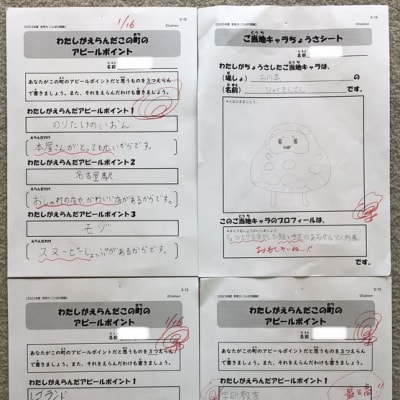 1/16
わたしがえらんだこの町の
アピールポイント
名前
あなたがこの町のアピールポイントだと思うものを3つえらん
で書きましょう。また、それをえらんだわけも書きましょう。
わたしがえらんだアピールポイント1
のりたけのいおん
えらんだわけ
本屋さんがとっても広いからです。
わたしがえらんだアピールポイント2
名古屋駅
えらんだわけ
おしゃれな店やかわいい店があるからです。
わたしがえらんだアピールポイント3
モゾ
えらんだわけ
スヌーピーしょっぷがあるからです。
ご当地キャラちょうさシート
名前
わたしがちょうさしたご当地キャラは、
(場しょ)
の
(名前)
です。
このご当地キャラのプロフィールは、
おもしろいね!
です。
1/16
わたしがえらんだこの町の
アピールポイント
名前
あなたがこの町のアピールポイントだと思うものを3つえらん
で書きましょう。また、それをえらんだわけも書きましょう。
わたしがえらんだアピールポイント1
レゴランド
わたしがえらんだこの町の
アピールポイント
名前
あなたがこの町のアピールポイントだと思うものを3つえらん
で書きましょう。また、それをえらんだわけも書きましょう。
わたしがえらんだアピールポイント1